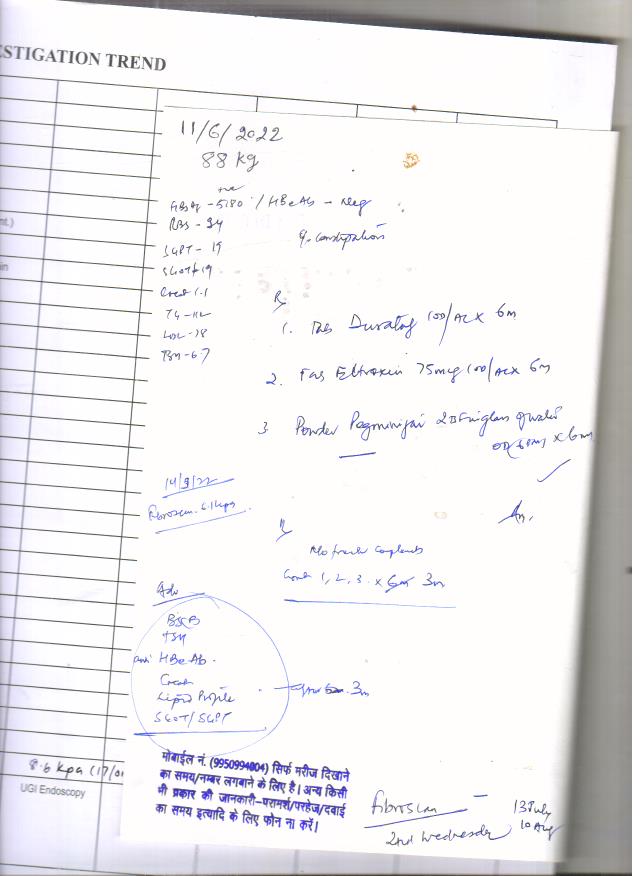 STIGATION TREND
11/6/2022
88 kg
+ve
HBsAg - 5180 / HBeAb - Neg
RBS - 94
c/o Constipation
SGPT - 19
SGOT - 19
Creat 1.1
TG - 112
LDL - 78
Rx
1. Tab 100/AC x 6m
2. Tab Eltroxin 75mcg 100/AC x 6m
3. Powder 2 glass of water
x 6m
14/9/22
Fibroscan - 6.1 kpa
Rx
No fresh complaints
Cont 1, 2, 3. x 3m
Adv
TSH
anti HBeAb.
Creat
Lipid Profile
3m
SGOT/SGPT
मोबाईल नं. (9950994004) सिर्फ मरीज दिखाने
का समय/नम्बर लगबाने के लिए है। अन्य किसी
भी प्रकार की जानकारी-परामर्श/परहेज/दवाई
का समय इत्यादि के लिए फोन ना करें।
8.6 kpa (17/01
UGI Endoscopy
Fibroscan - 13 July
2nd Wednesday 10 Aug